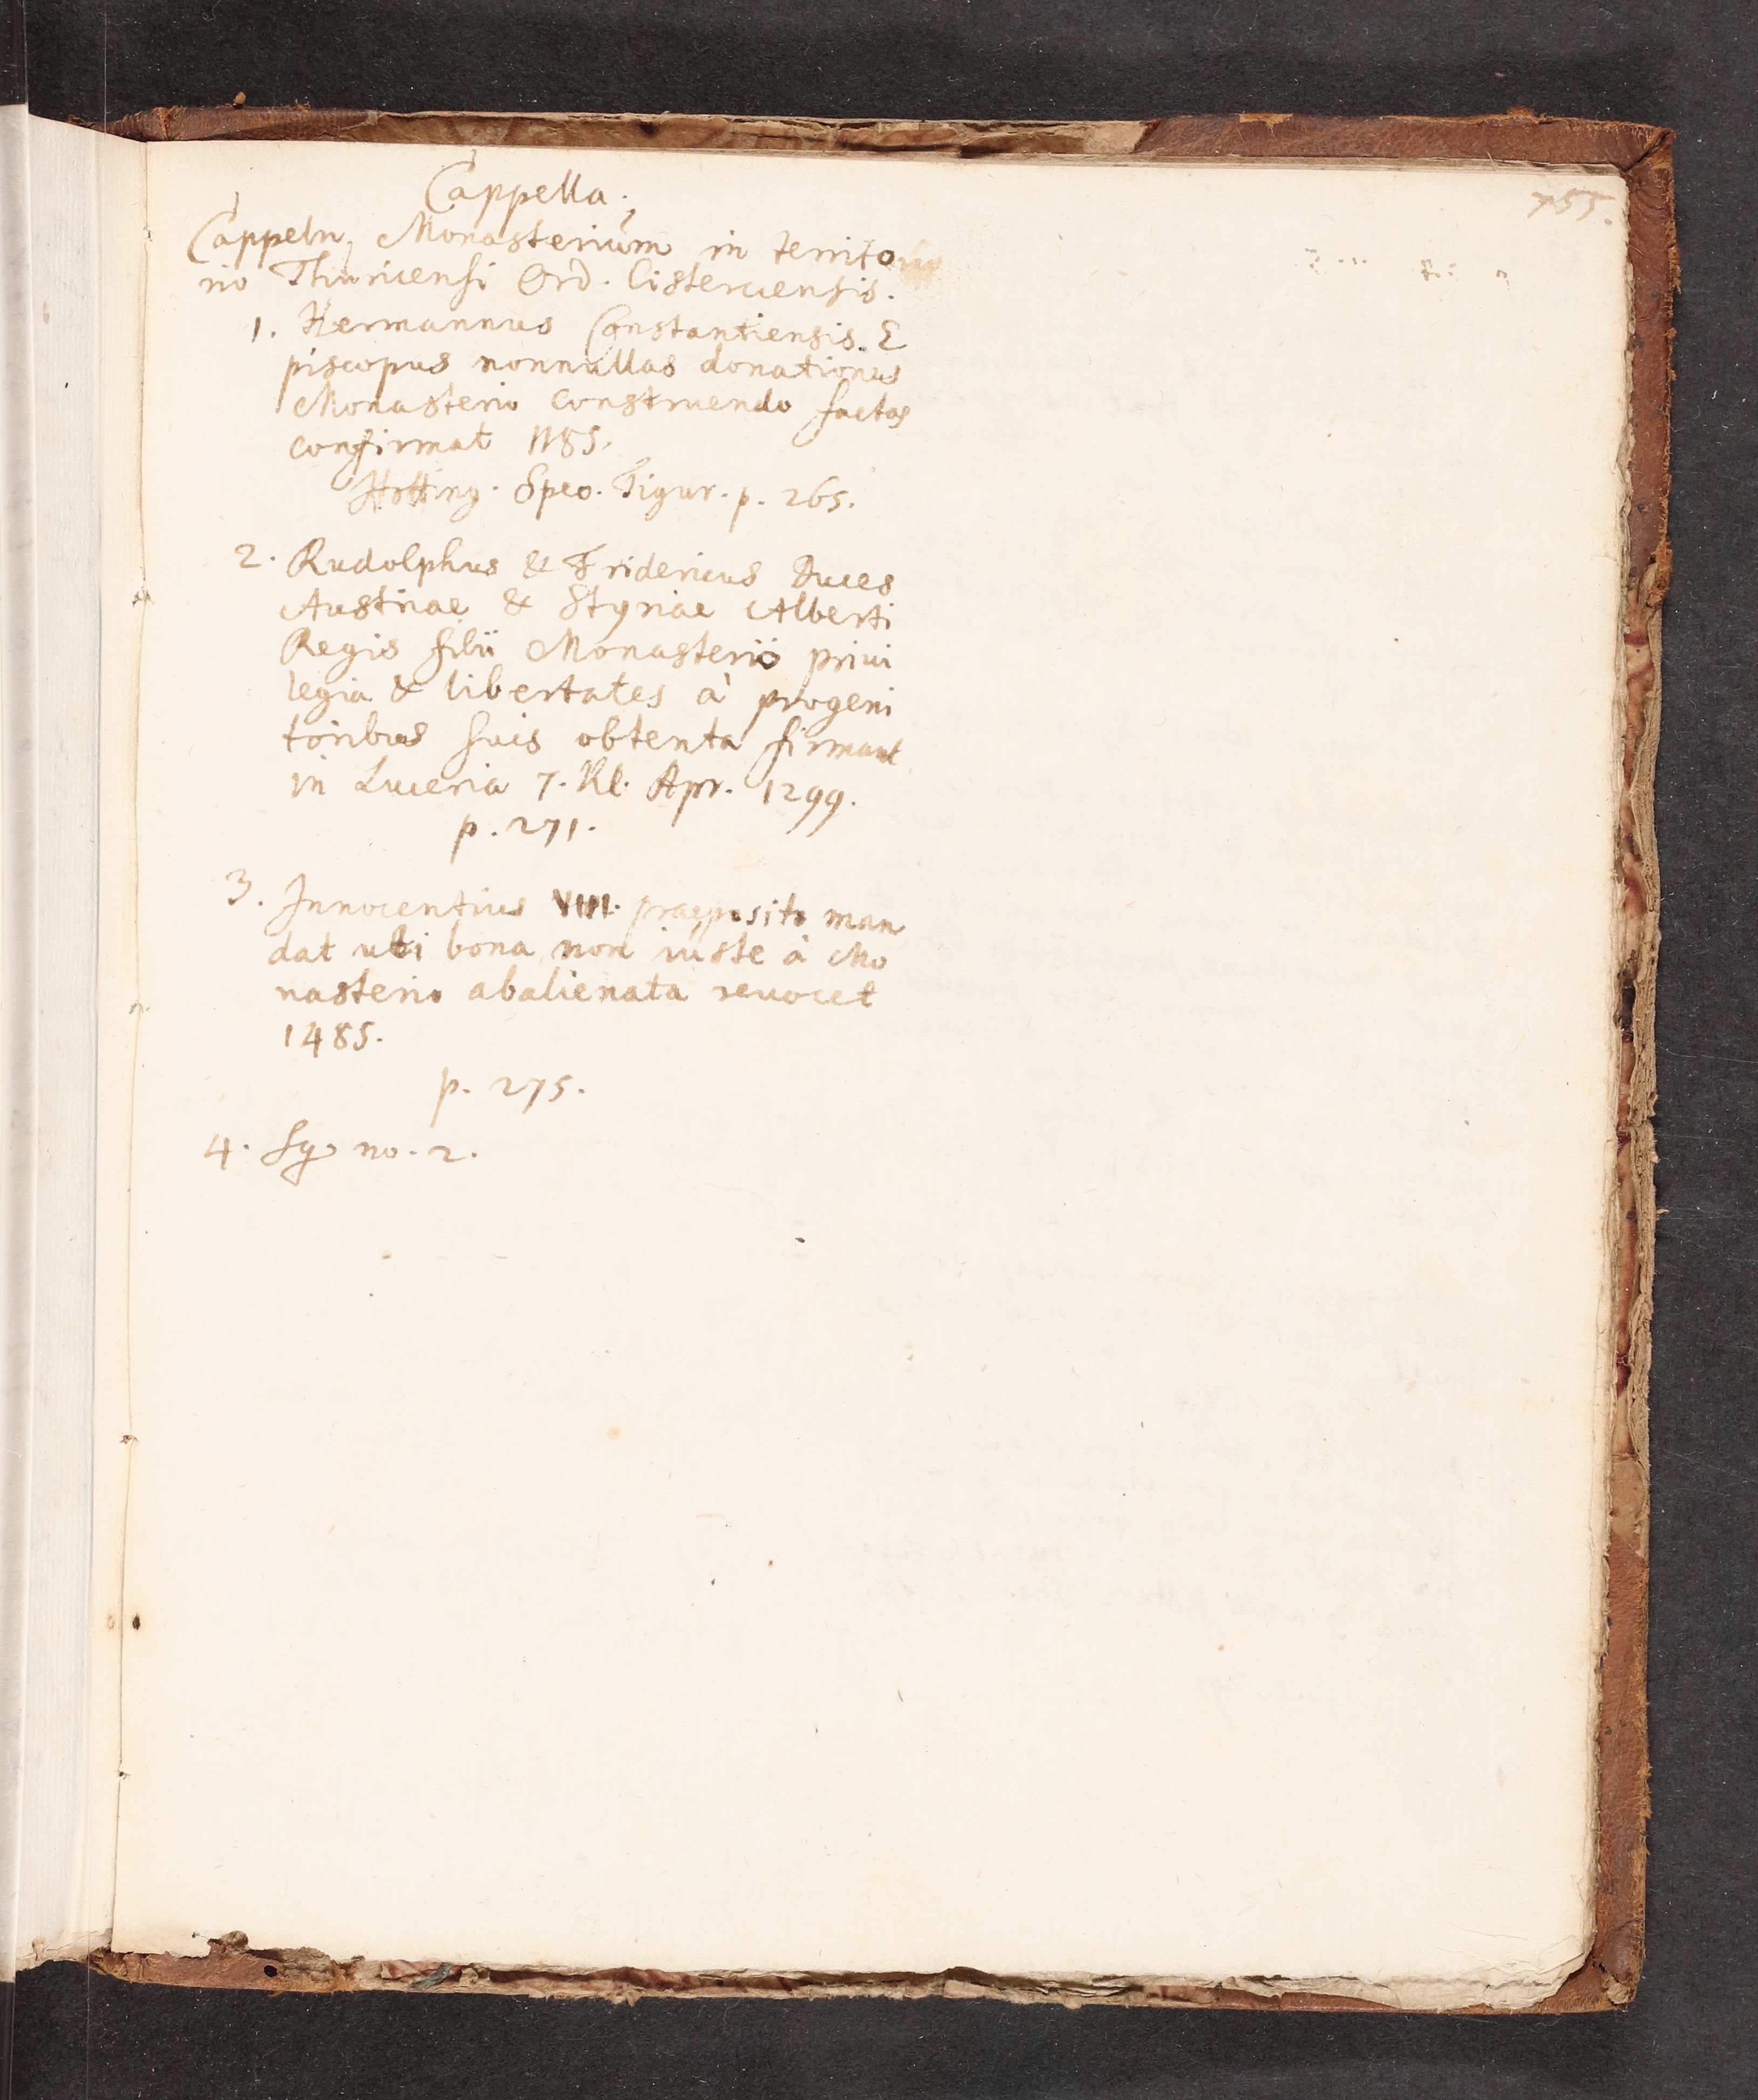 755.
Cappella.
Cappeln, Monasterium in territo
rio Thuricensi Ord. Cisterciensis.
1. Hermannus Constantiensis E
piscopus nonnullas donationes
Monasterio construendo factas
confirmat 1185.
Hotting. Spec. Tigur. p. 265.
2. Rudolphus & Fridericus Duces
Austriae & Styriae Alberti
Regis filii Monasterio privi
legia & libertates à progeni
toribus suis obtenta firmant
in Luceria 7. Kl. Apr. 1299.
p. 271.
3. Innocentius VIII. praeposito man
dat uti bona non iuste à Mo
nasterio abalienata revocet
1485.
p. 275.
4. no. 2.